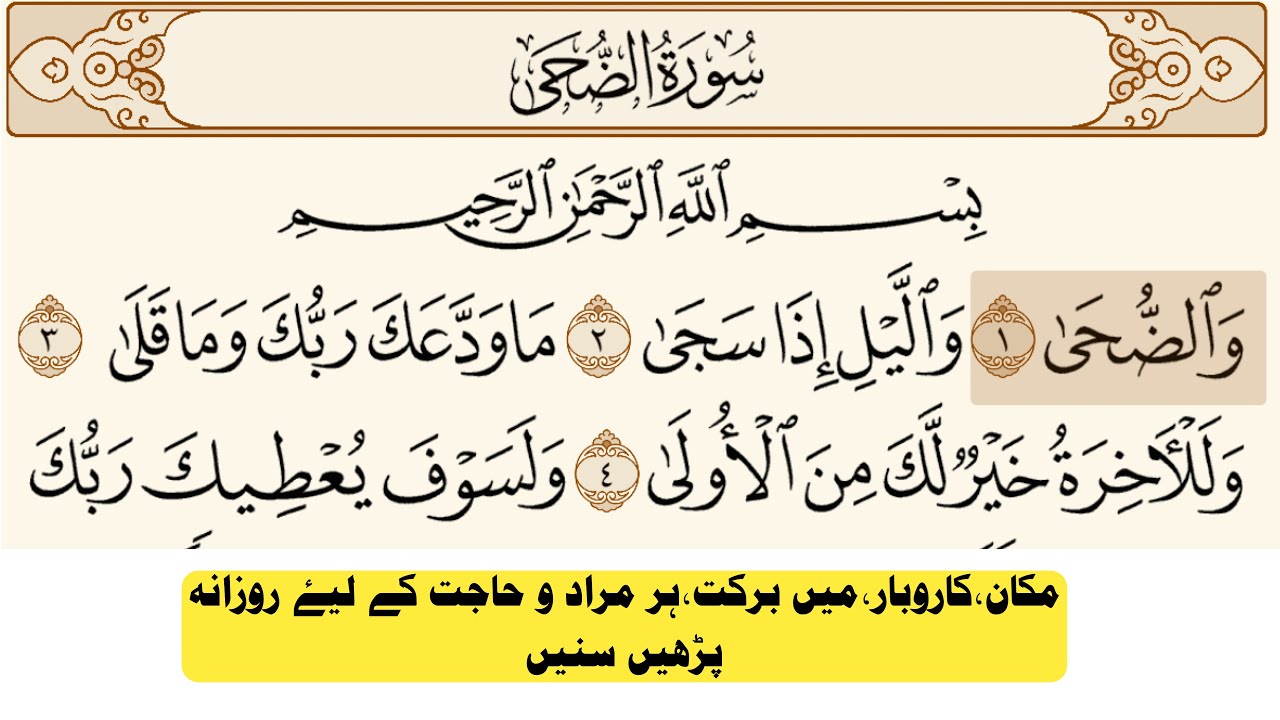 سُورَةُ الضُّحَى
بِسْمِ ٱللَّهِ ٱلرَّحْمَٰنِ ٱلرَّحِيمِ
وَٱلضُّحَىٰ ١ وَٱلَّيْلِ إِذَا سَجَىٰ ٢ مَا وَدَّعَكَ رَبُّكَ وَمَا قَلَىٰ ٣
وَلَلْأَخِرَةُ خَيْرٌ لَّكَ مِنَ ٱلْأُولَىٰ ٤ وَلَسَوْفَ يُعْطِيكَ رَبُّكَ
مکان،کاروبار،میں برکت،ہر مراد و حاجت کے لیۓ روزانہ
پڑھیں سنیں